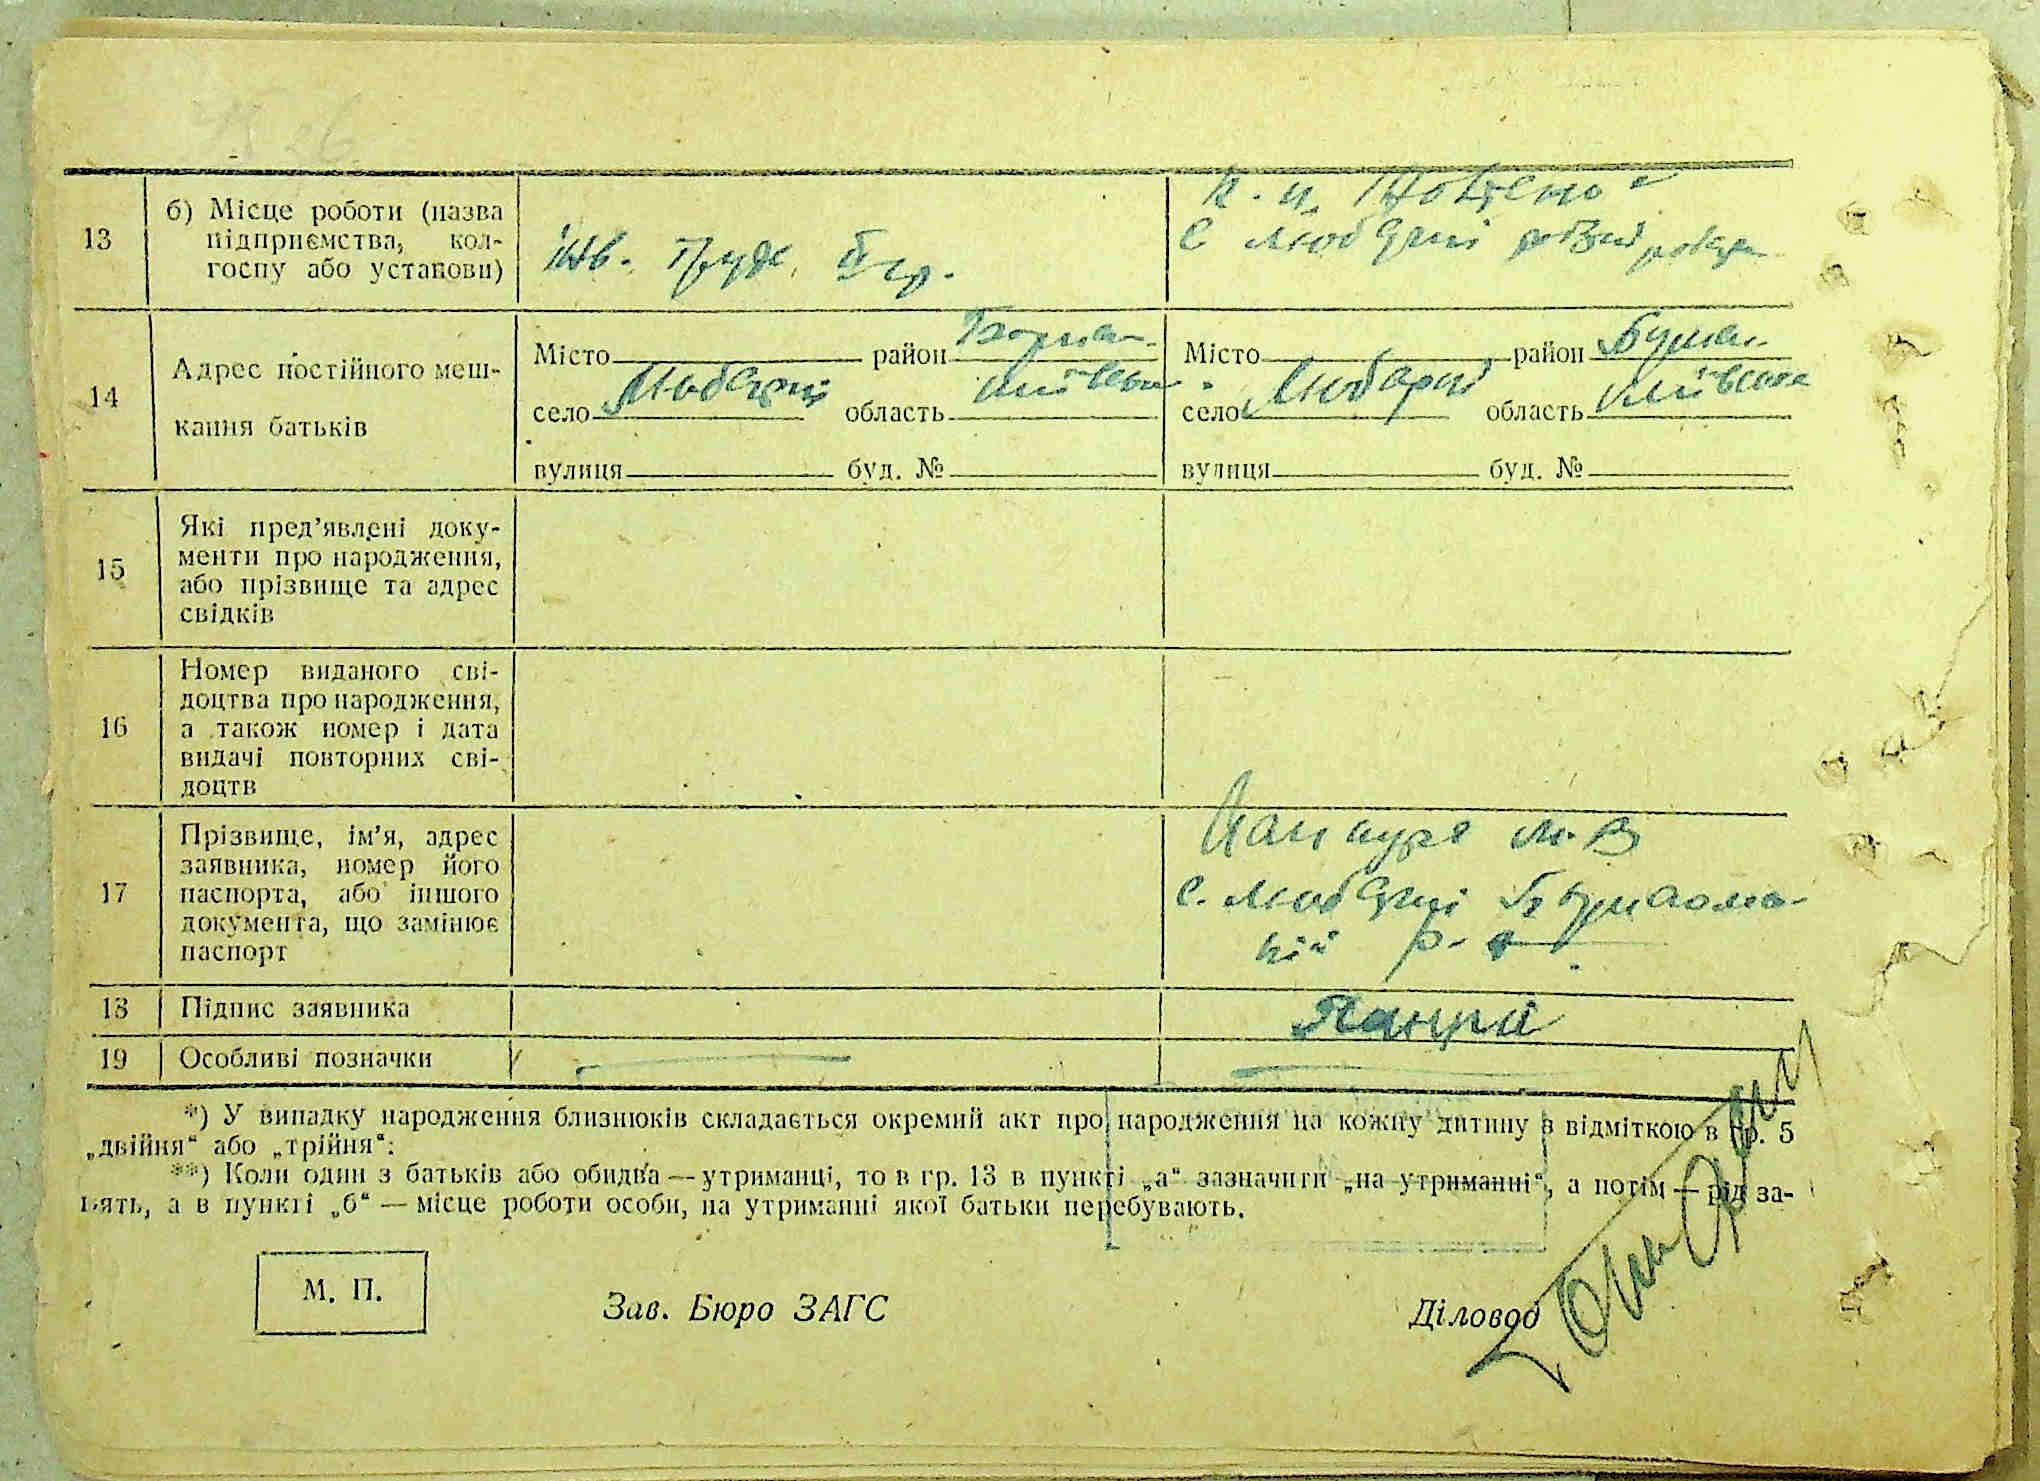 13
б) Місце роботи (назва
підприємства, кол-
госпу або установи)
Інв. Труда II гр.
с Любарці
14
Адрес постійного меш-
кання батьків
Місто район
село Любарці область Київська
вулиця буд. №
Місто район
село Любарці область Київська
вулиця буд. №
15
Які пред’явлені доку-
менти про народження,
або прізвище та адрес
свідків
16
Номер виданого сві-
доцтва про народження,
а також номер і дата
видачі повторних сві-
доцтв
17
Прізвище, ім’я, адрес
заявника, номер його
паспорта, або іншого
документа, що замінює
паспорт
с. Любарці
18
Підпис заявника
19
Особливі позначки
*) У випадку народження близнюків складається окремий акт про народження на кожну дитину з відміткою в гр. 5
„двійня“ або „трійня“:
**) Коли один з батьків або обидва — утриманці, то в гр. 13 в пункті „а“ зазначити „на утриманні“, а потім — рід за-
нять, а в пункті „б“ — місце роботи особи, на утриманні якої батьки перебувають.
М. П.
Зав. Бюро ЗАГС
Діловод